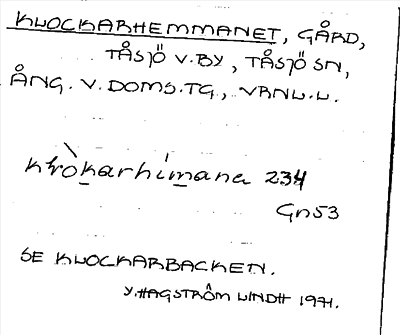 KLOCKARHEMMANET, GÅRD,
TÅSJÖ V.BY, TÅSJÖ SN,
ÅNG. V. DOMS.TG., VRNL.L.
234
Gn53
SE KLOCKARBACKEN.
Y.HAGSTRÖM LINDH 1971.